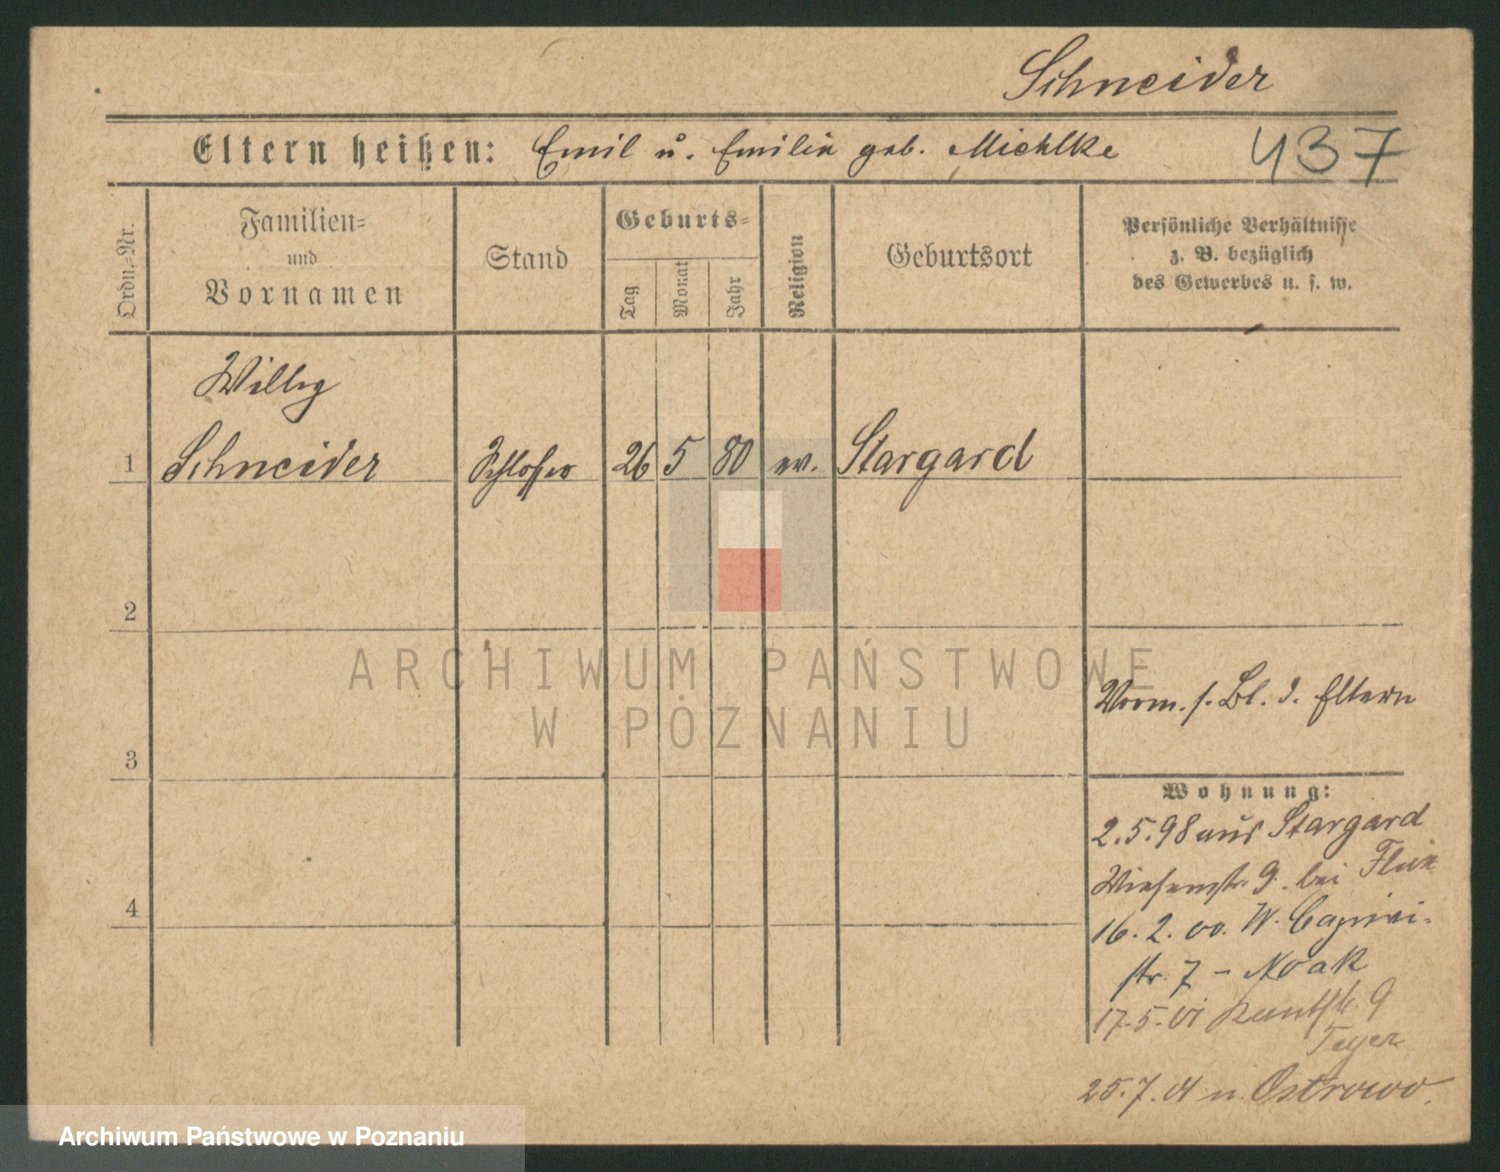 Schneider
Eltern heißen: Emil u. Emilie geb. Michlke
437
Ordn.-Nr.
Familien-
und
Vornamen
Stand
Geburts-
Tag
Monat
Jahr
Religion
Geburtsort
Persönliche Verhältnisse
z. B. bezüglich
des Gewerbes u. s. w.
Willy
1 Schneider Schlosser 26 5 80 ev. Stargard
2
ARCHIWUM PAŃSTWOWE
W POZNANIU
Vorm. s. Bl. d. Eltern
3
Wohnung:
2.5.98 aus Stargard
Wiesenstr. 9. bei
4
16. 2. 00. W. Caprivi-
str. 7 - Noak
17.5.01 9
25.7.01 n. Ostrowo.
Archiwum Państwowe w Poznaniu